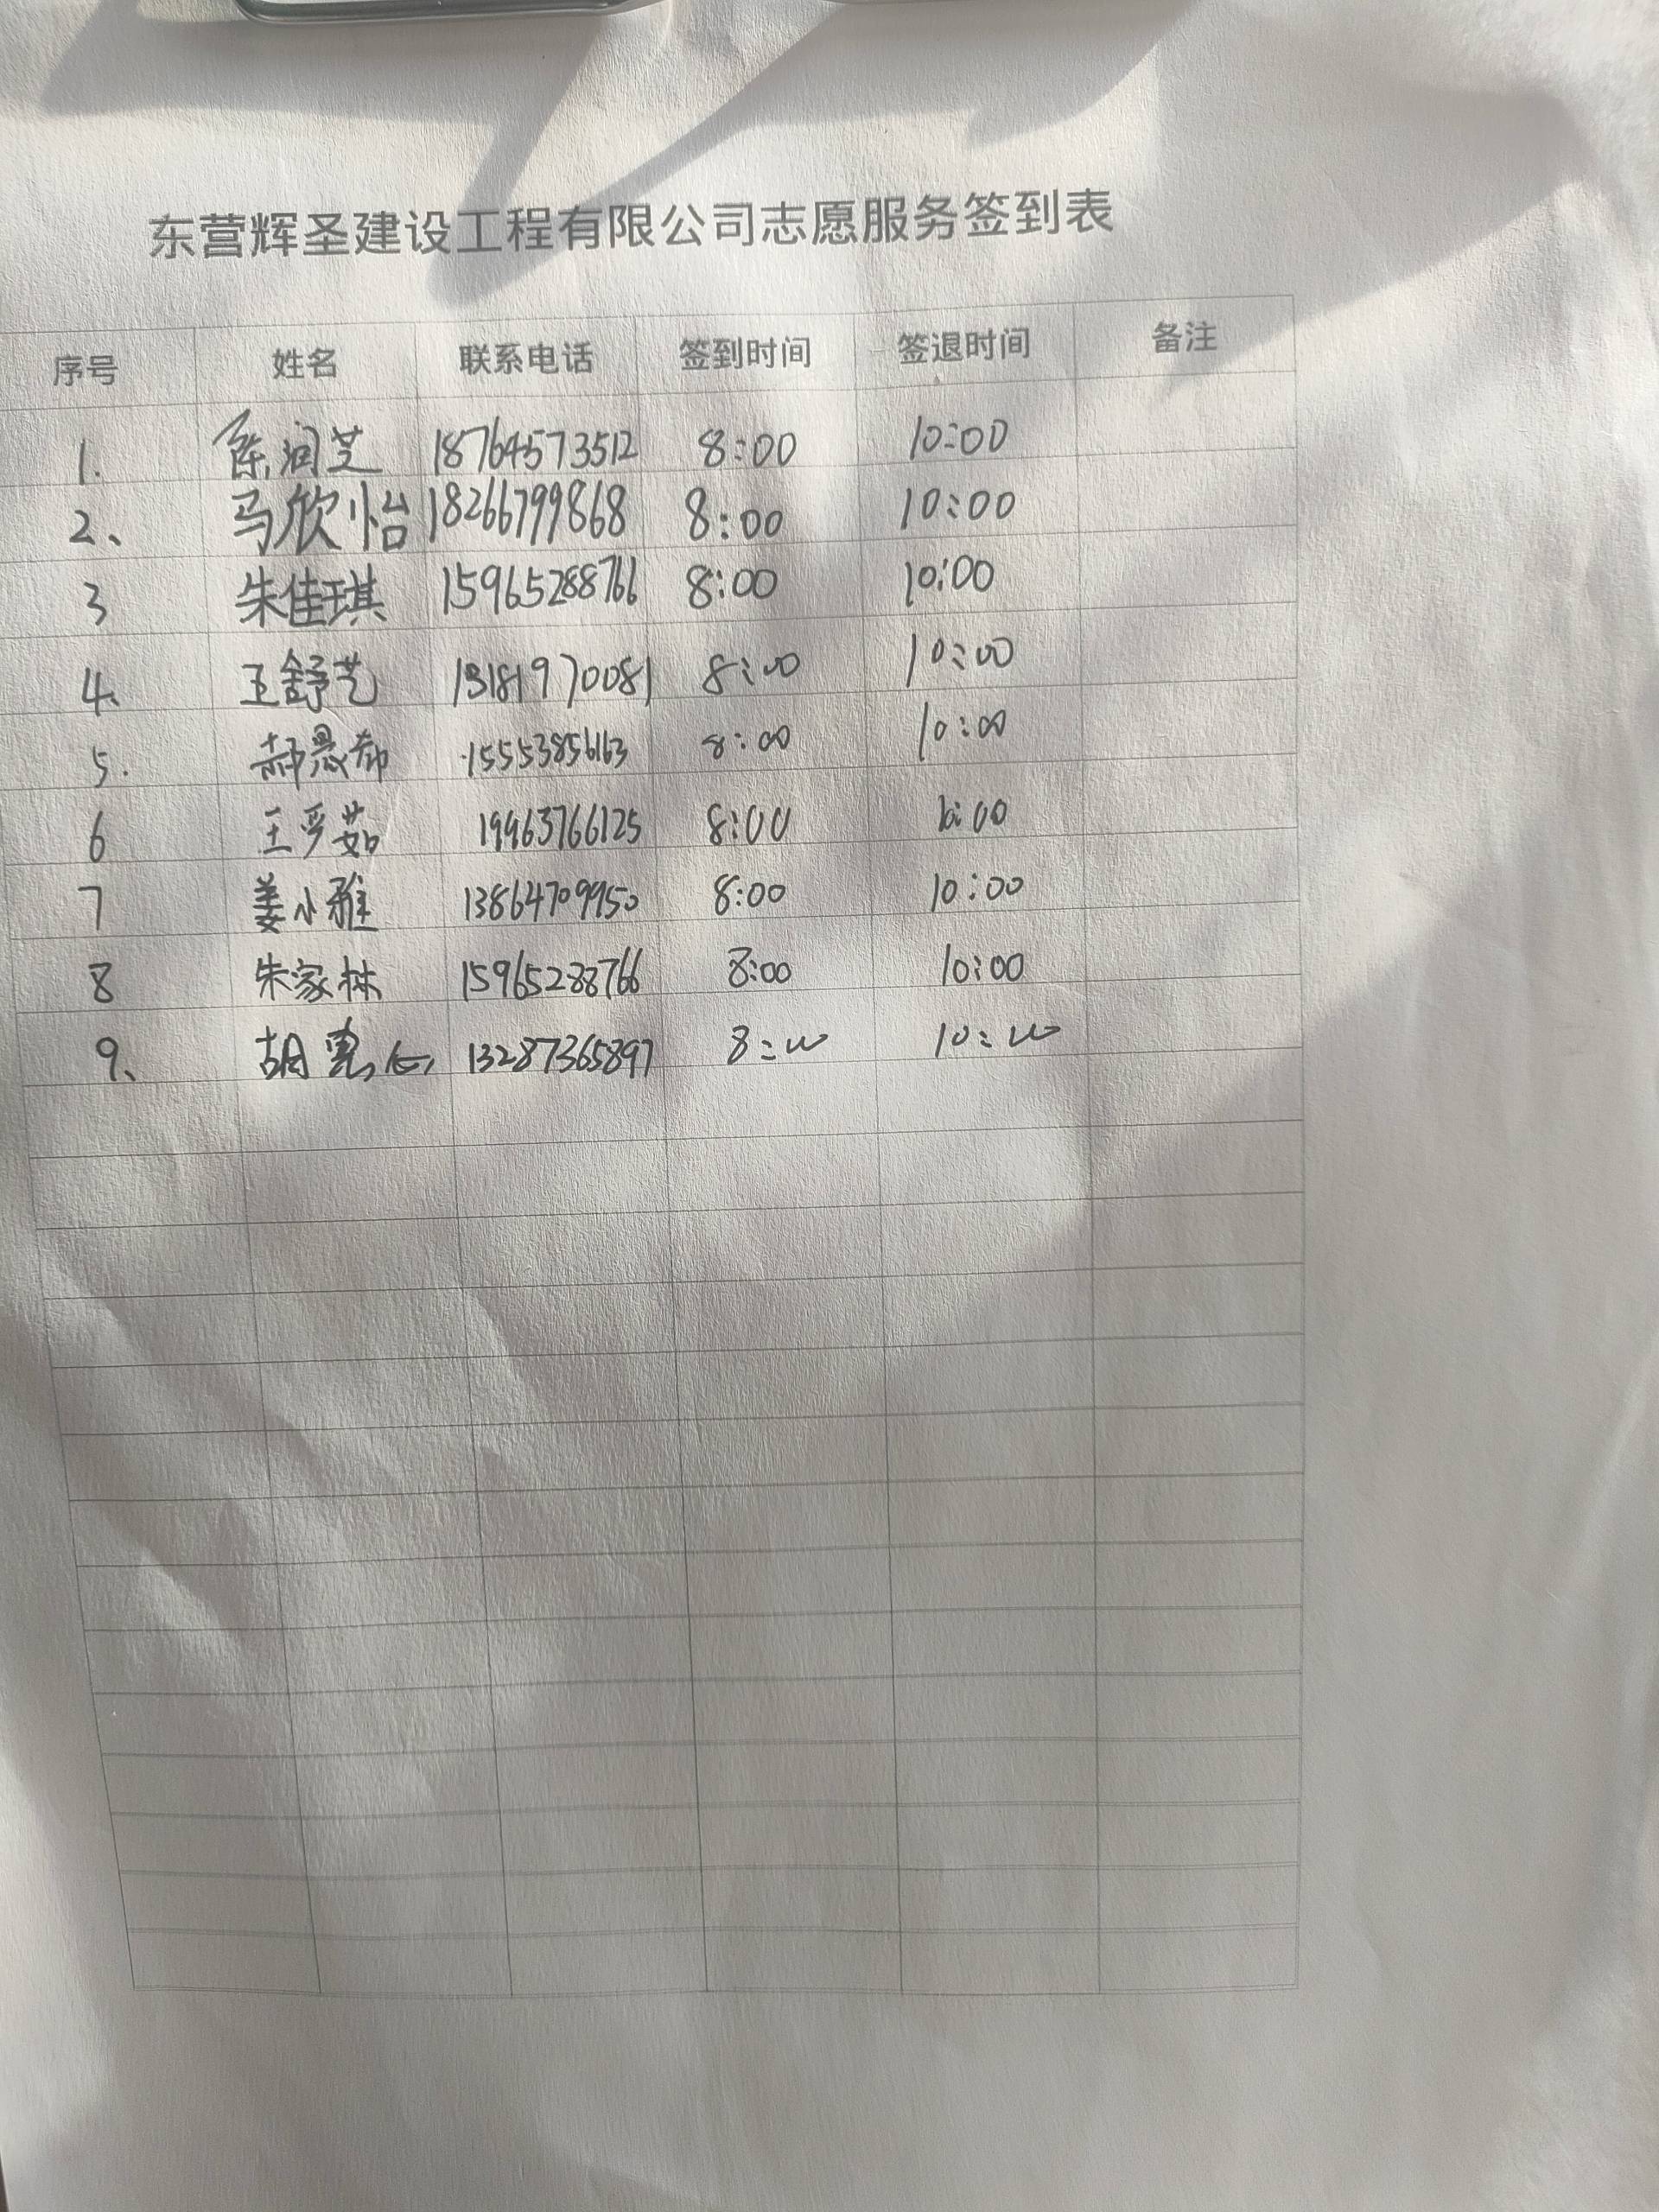 东营辉圣建设工程有限公司志愿服务签到表
序号 姓名 联系电话 签到时间 签退时间 备注
1. 陈润芝 18764573512 8:00 10:00
2、 马欣怡 18266799868 8:00 10:00
3 朱佳琪 15965288766 8:00 10:00
4、 王舒艺 13181970081 8:00 10:00
5. 郝思 15553856163 8:00 10:00
6 王 茹 19963766125 8:00 10:00
7 姜小雅 13864709950 8:00 10:00
8 朱家林 15965288766 8:00 10:00
9、 胡 13287365897 8:00 10:00